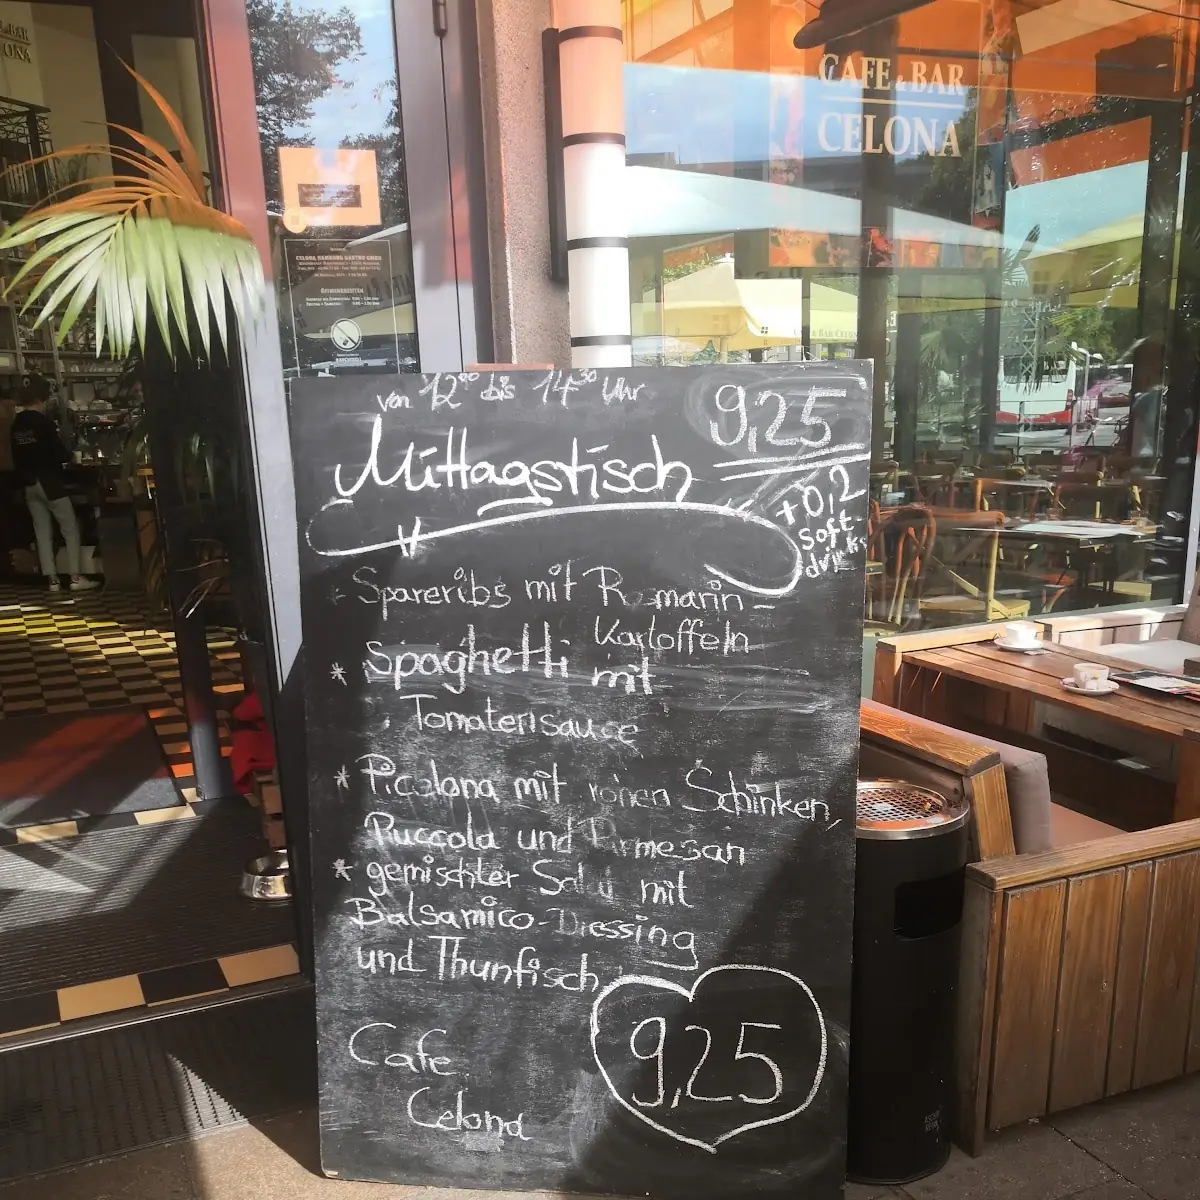 CAFE & BAR
CELONA
CELONA HAMBURG GASTRO GMBH
ÖFFNUNGSZEITEN
von 12⁰⁰ bis 14³⁰ Uhr
9,25
Mittagstisch
+0,2
Soft-
drinks
* Spareribs mit Rosmarin-
Kartoffeln
* Spaghetti mit
Tomatensauce
* Picelona mit rohen Schinken,
Ruccola und Parmesan
* gemischter Salat mit
Balsamico-Dressing
und Thunfisch
9,25
Cafe
Celona